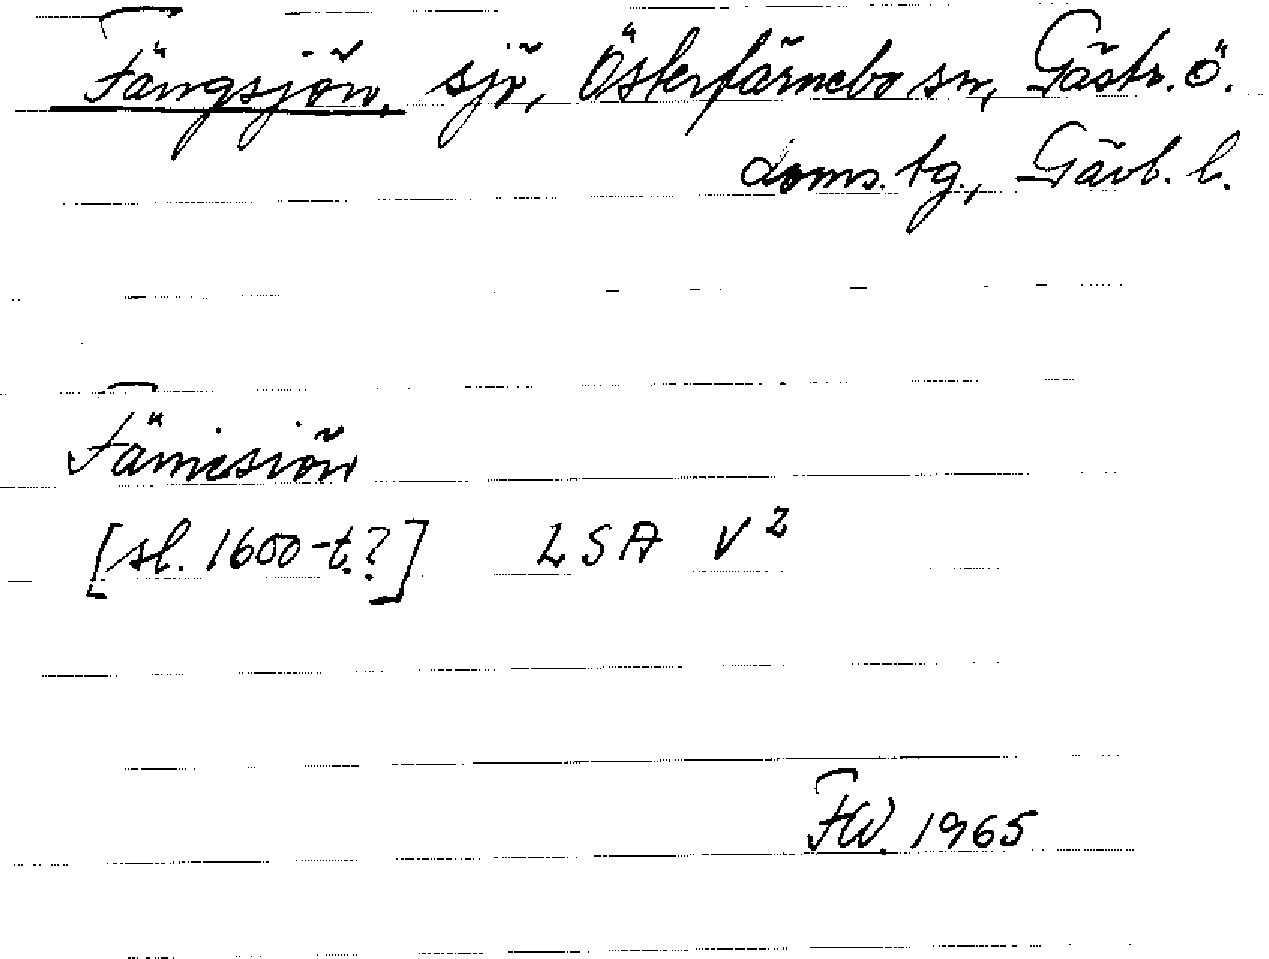 Fängsjön, sjö, Österfärnebo sn, Gästr. ö.
doms. tg., Gävl. l.
Fämisiön
[sl. 1600-t.?] LSA V²
FW. 1965